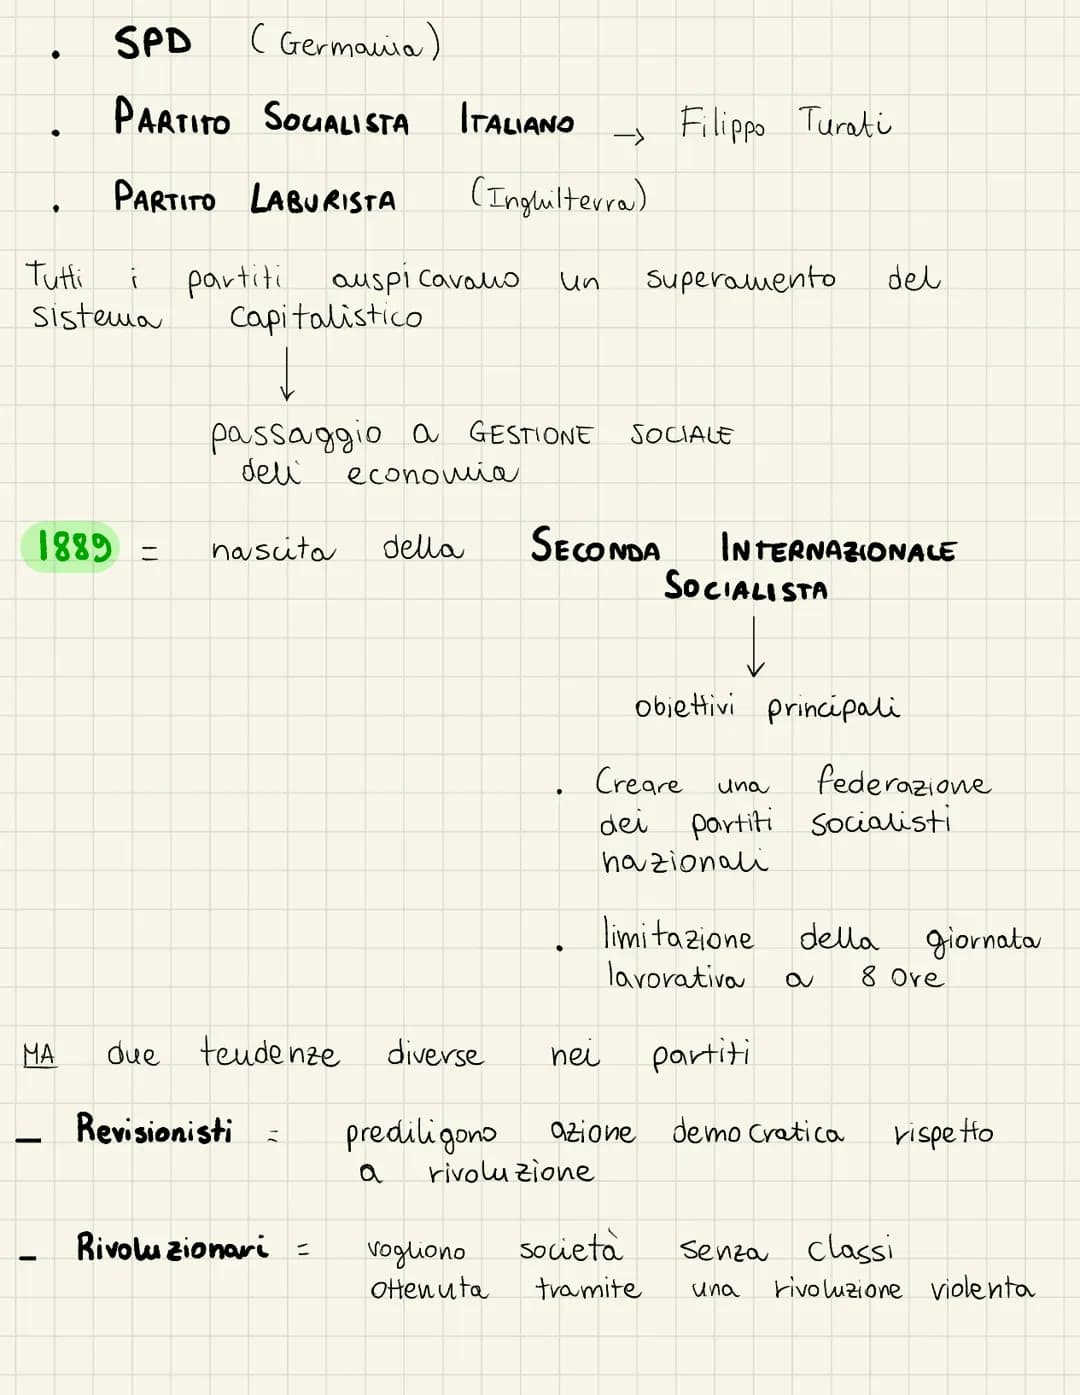 . SPD (Germania)
. PARTITO SOCIALISTA ITALIANO → Filippo Turati
. PARTITO LABURISTA (Inghilterra)
Tutti i partiti auspicavano un superamento del
sistema capitalistico
↓
passaggio a GESTIONE SOCIALE
dell' economia
1889 = nascita della SECONDA INTERNAZIONALE
SOCIALISTA
↓
obiettivi principali
. Creare una federazione
dei partiti socialisti
nazionali
. limitazione della giornata
lavorativa a 8 ore
MA due tendenze diverse nei partiti
- Revisionisti = prediligono azione democratica rispetto
a rivoluzione
- Rivoluzionari = vogliono società senza classi
ottenuta tramite una rivoluzione violenta